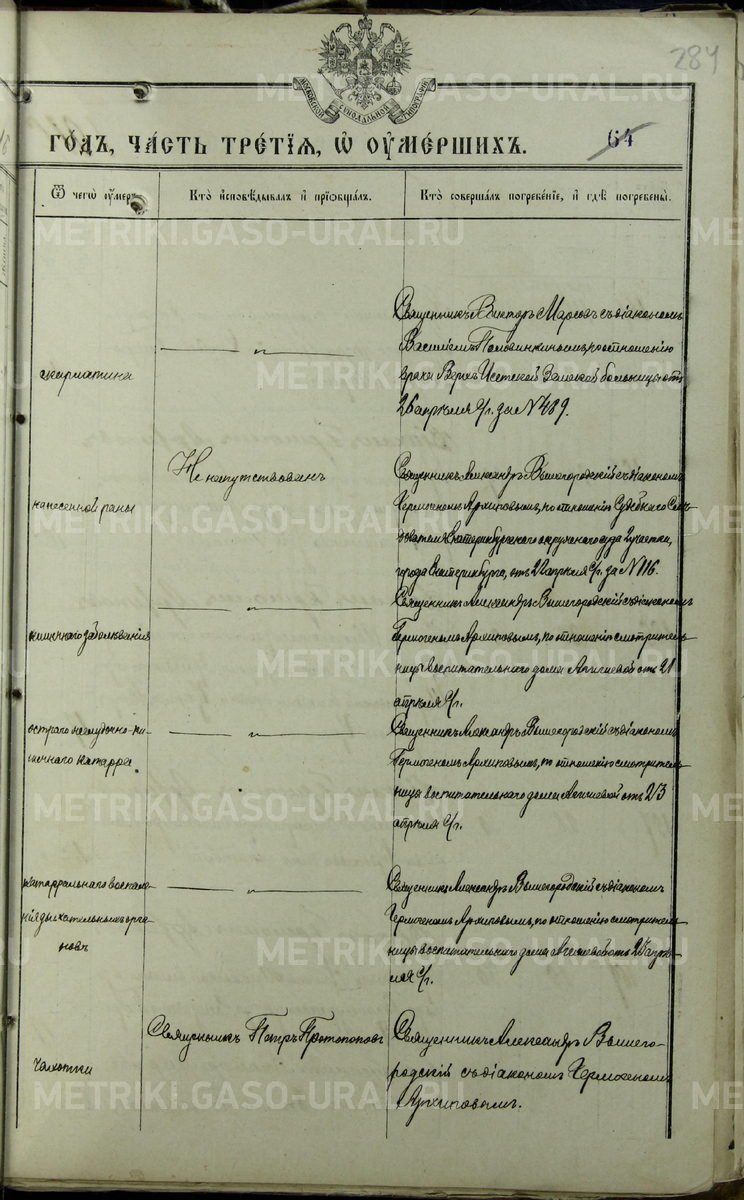 284
МОСКОВСКОЙ СѴНОДАЛЬНОЙ ТИПОГРАФІИ
64
ГОДЪ, ЧАСТЬ ТРЕТІЯ, Ѡ ОУМЕРШИХЪ.
Ѿ чегѡ оумеръ.
Кто исповѣдывалъ и пріобщалъ.
Кто совершалъ погребеніе, и гдѣ погребены.
скарлатина
— „ —
Священникъ Викторъ Марсовъ съ діакономъ
Василіемъ Половинкинымъ, по отношенію
врача Верхъ Исетской Земской больницы отъ
26 апрѣля с/г. за № 489.
нанесенной раны
Не напутствованъ
Священникъ Александръ Вышегородскій съ діакономъ
Гермогеномъ Архиповымъ, по отношенію Судебнаго Слѣ-
дователя Екатеринбургскаго окружнаго суда 2 участка,
города Екатеринбурга, отъ 22 апрѣля с/г. за № 116.
кишечнаго заболѣванія
— „ —
Священникъ Александръ Вышегородскій съ діакономъ
Гермогеномъ Архиповымъ, по отношенію смотритель-
ницы воспитательнаго дома отъ 21
апрѣля с/г.
остраго желудочно-ки-
шечнаго катарра
— „ —
Священникъ Александръ Вышегородскій съ діакономъ
Гермогеномъ Архиповымъ, по отношенію смотритель-
ницы воспитательнаго дома отъ 23
апрѣля с/г.
катарральнаго воспале-
нія дыхательныхъ орга-
новъ
— „ —
Священникъ Александръ Вышегородскій съ діакономъ
Гермогеномъ Архиповымъ, по отношенію смотритель-
ницы воспитательнаго дома отъ апрѣ-
ля с/г.
чахотки
Священникъ Петръ Протопоповъ
Священникъ Александръ Вышего-
родскій съ діакономъ Гермогеномъ
Архиповымъ.
METRIKI.GASO-URAL.RU